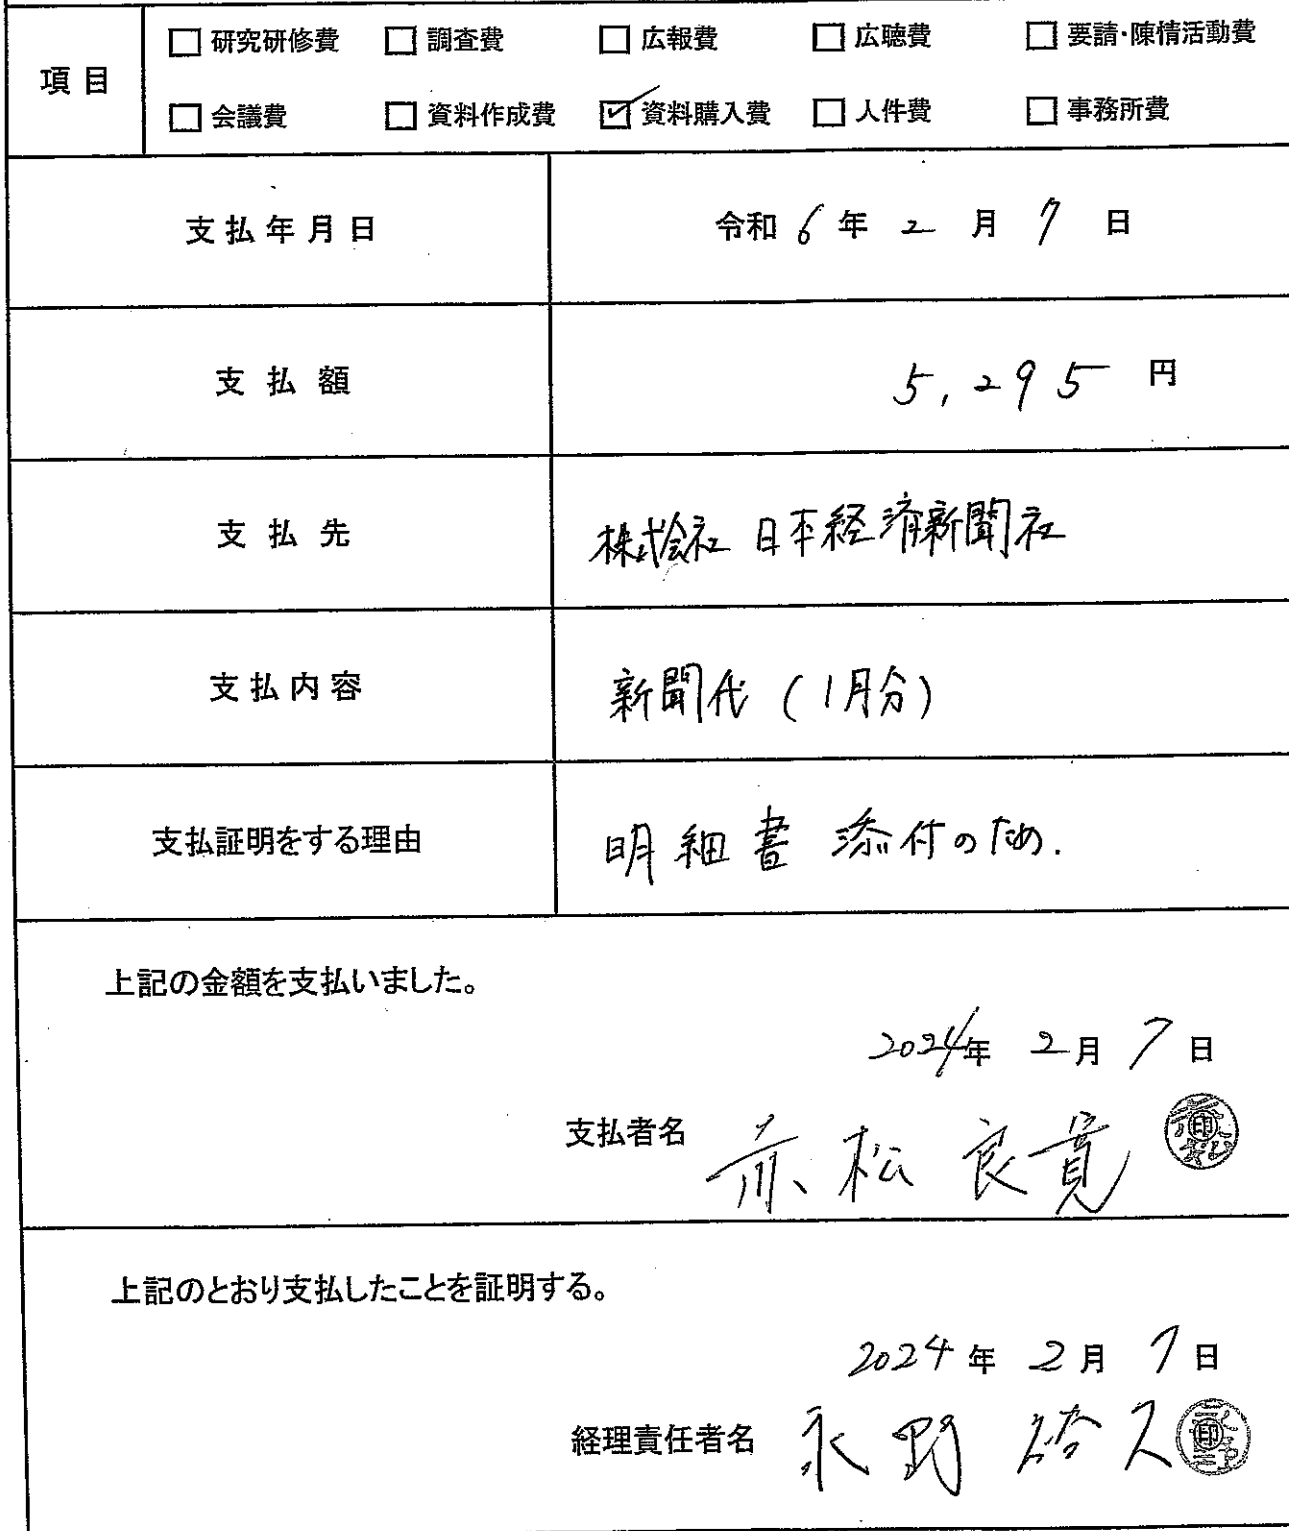 項目 □ 研究研修費 □ 調査費 □ 広報費 □ 広聴費 □ 要請・陳情活動費
□ 会議費 □ 資料作成費 ☑ 資料購入費 □ 人件費 □ 事務所費
支払年月日 令和 6 年 2 月 7 日
支払額 5,295 円
支払先 株式会社 日本経済新聞社
支払内容 新聞代 (1月分)
支払証明をする理由 明細書 添付のため.
上記の金額を支払いました。
2024年 2月 7日
支払者名 赤松 良寛 印
上記のとおり支払したことを証明する。
2024年 2月 7日
経理責任者名 永野 久 印